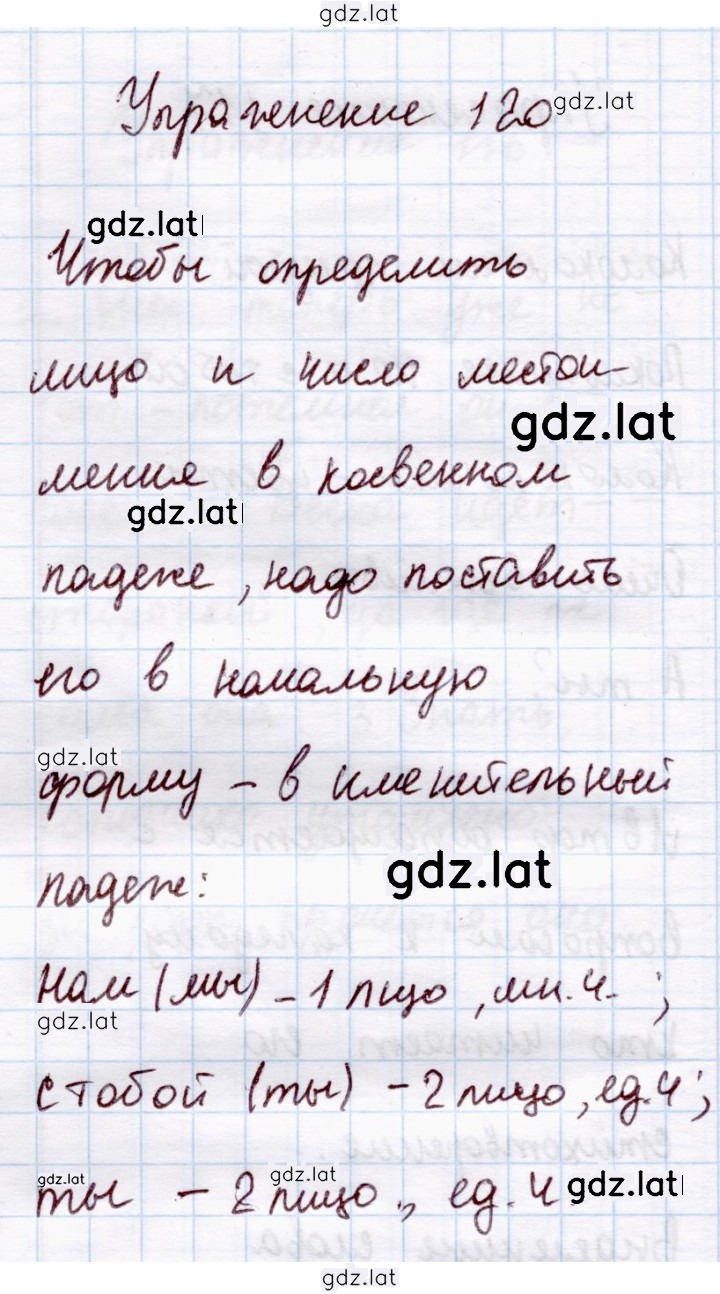 gdz.lat
Упражнение 120 gdz.lat
gdz.lat
Чтобы определить
лицо и число местои-
gdz.lat
мения в косвенном
gdz.lat
падеже, надо поставить
его в номальную
gdz.lat
форму – в именительный
падеж: gdz.lat
Нам (мы) – 1 лицо, мн.ч. ;
gdz.lat
с тобой (ты) – 2 лицо, ед.ч ;
gdz.lat gdz.lat
ты – 2 лицо, ед.ч gdz.lat
gdz.lat